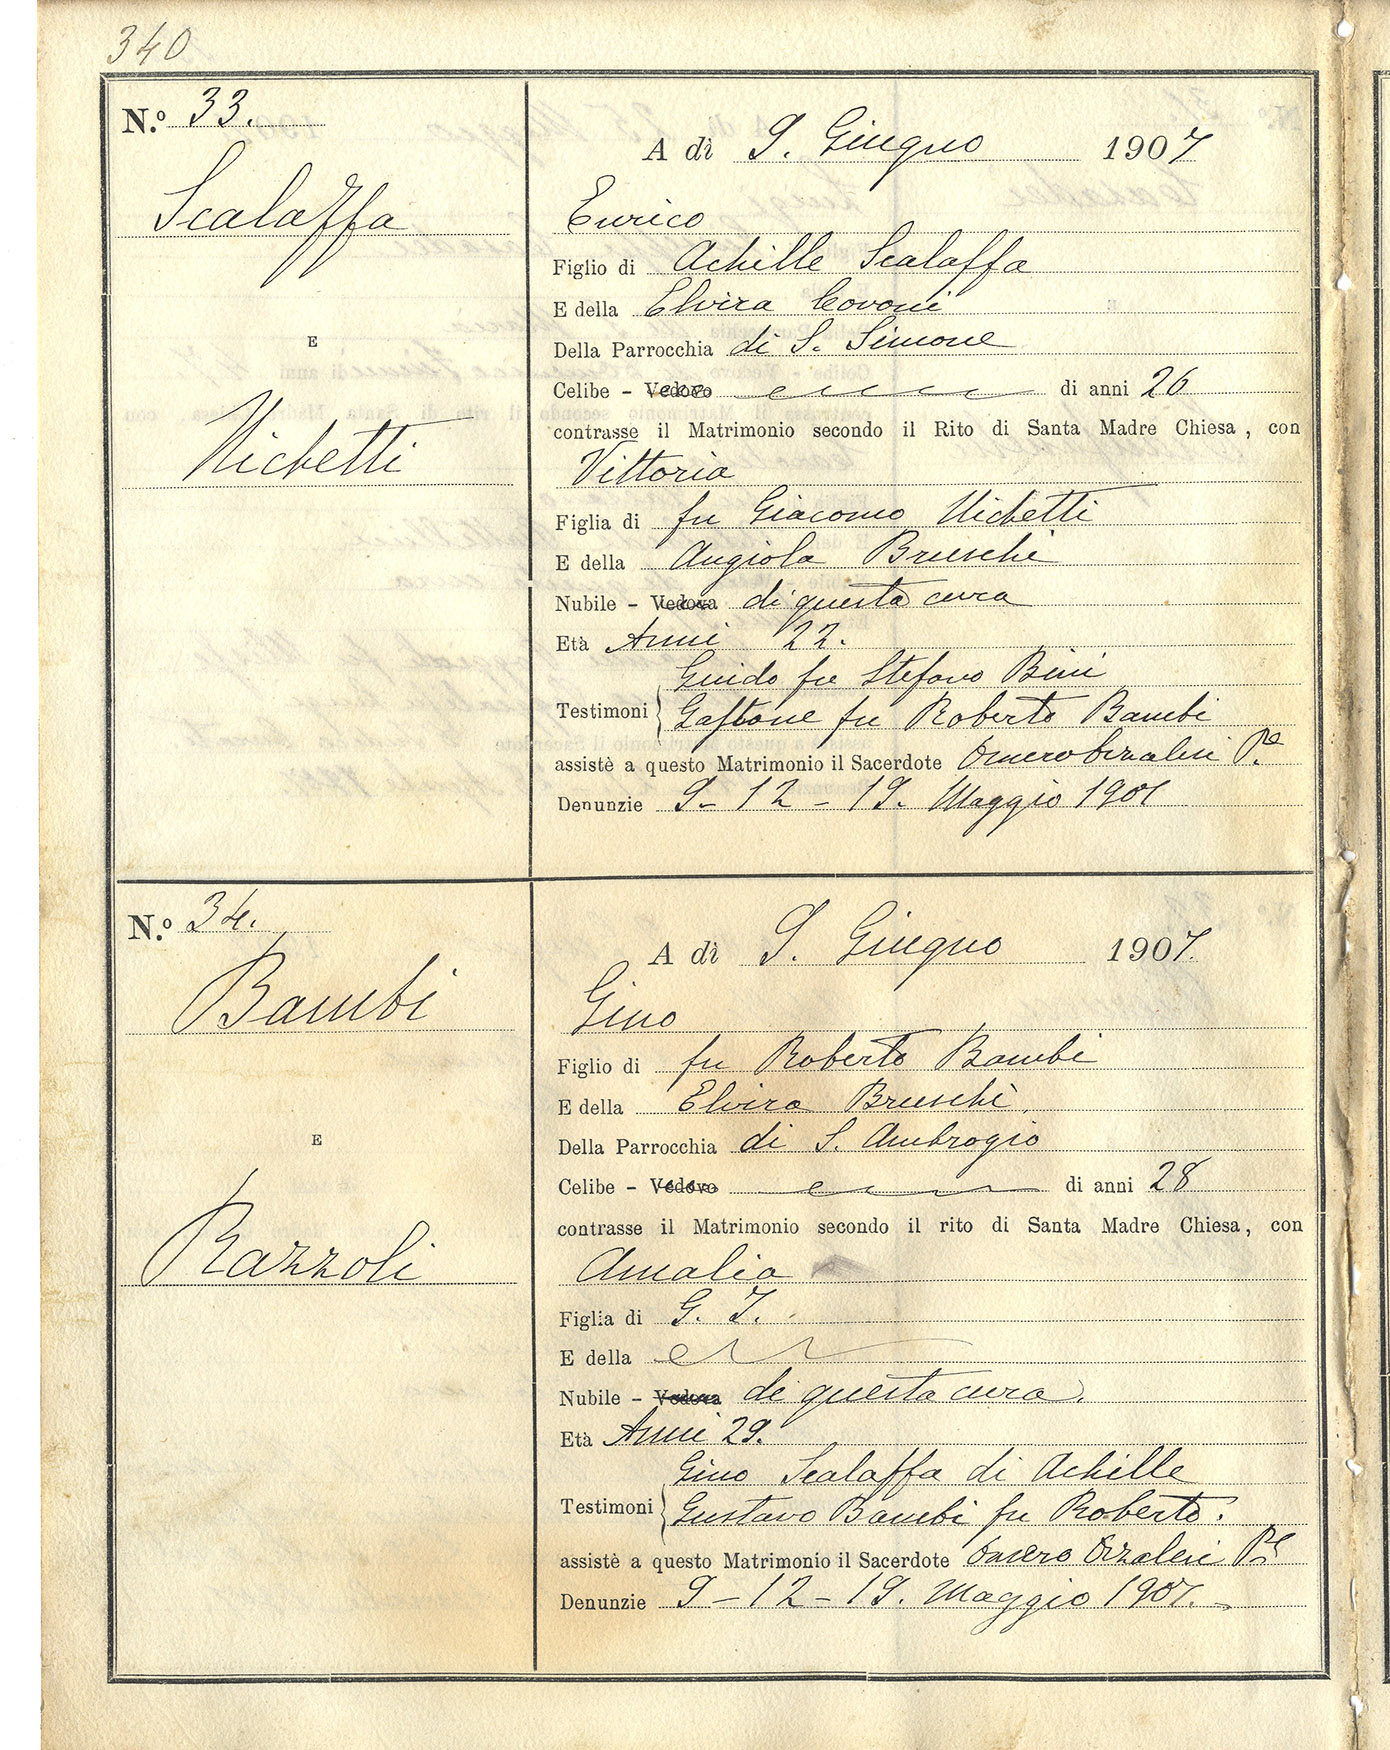 340
N.º 33.
Scalaffa
E
Nichetti
A dì 9. Giugno 1907
Enrico
Figlio di Achille Scalaffa
E della Elvira Covoni
Della Parrocchia di S. Simone
Celibe - Vedovo di anni 26
contrasse il Matrimonio secondo il Rito di Santa Madre Chiesa, con
Vittoria
Figlia di fu Giacomo Nichetti
E della Angiola Bruschi
Nubile - Vedova di questa cura
Età Anni 22.
Guido fu Stefano Bini
Testimoni Gastone fu Roberto Bambi
assistè a questo Matrimonio il Sacerdote Omero Orzalesi Pe
Denunzie 9 - 12 - 19. Maggio 1907
N.º 34.
Bambi
E
Razzoli
A dì 9. Giugno 1907.
Gino
Figlio di fu Roberto Bambi
E della Elvira Bruschi.
Della Parrocchia di S. Ambrogio
Celibe - Vedovo di anni 28
contrasse il Matrimonio secondo il rito di Santa Madre Chiesa, con
Amalia
Figlia di G. I.
E della
Nubile - Vedova di questa cura.
Età Anni 29.
Gino Scalaffa di Achille
Testimoni Gustavo Bambi fu Roberto.
assistè a questo Matrimonio il Sacerdote Omero Orzalesi Pe
Denunzie 9 - 12 - 19. Maggio 1907.